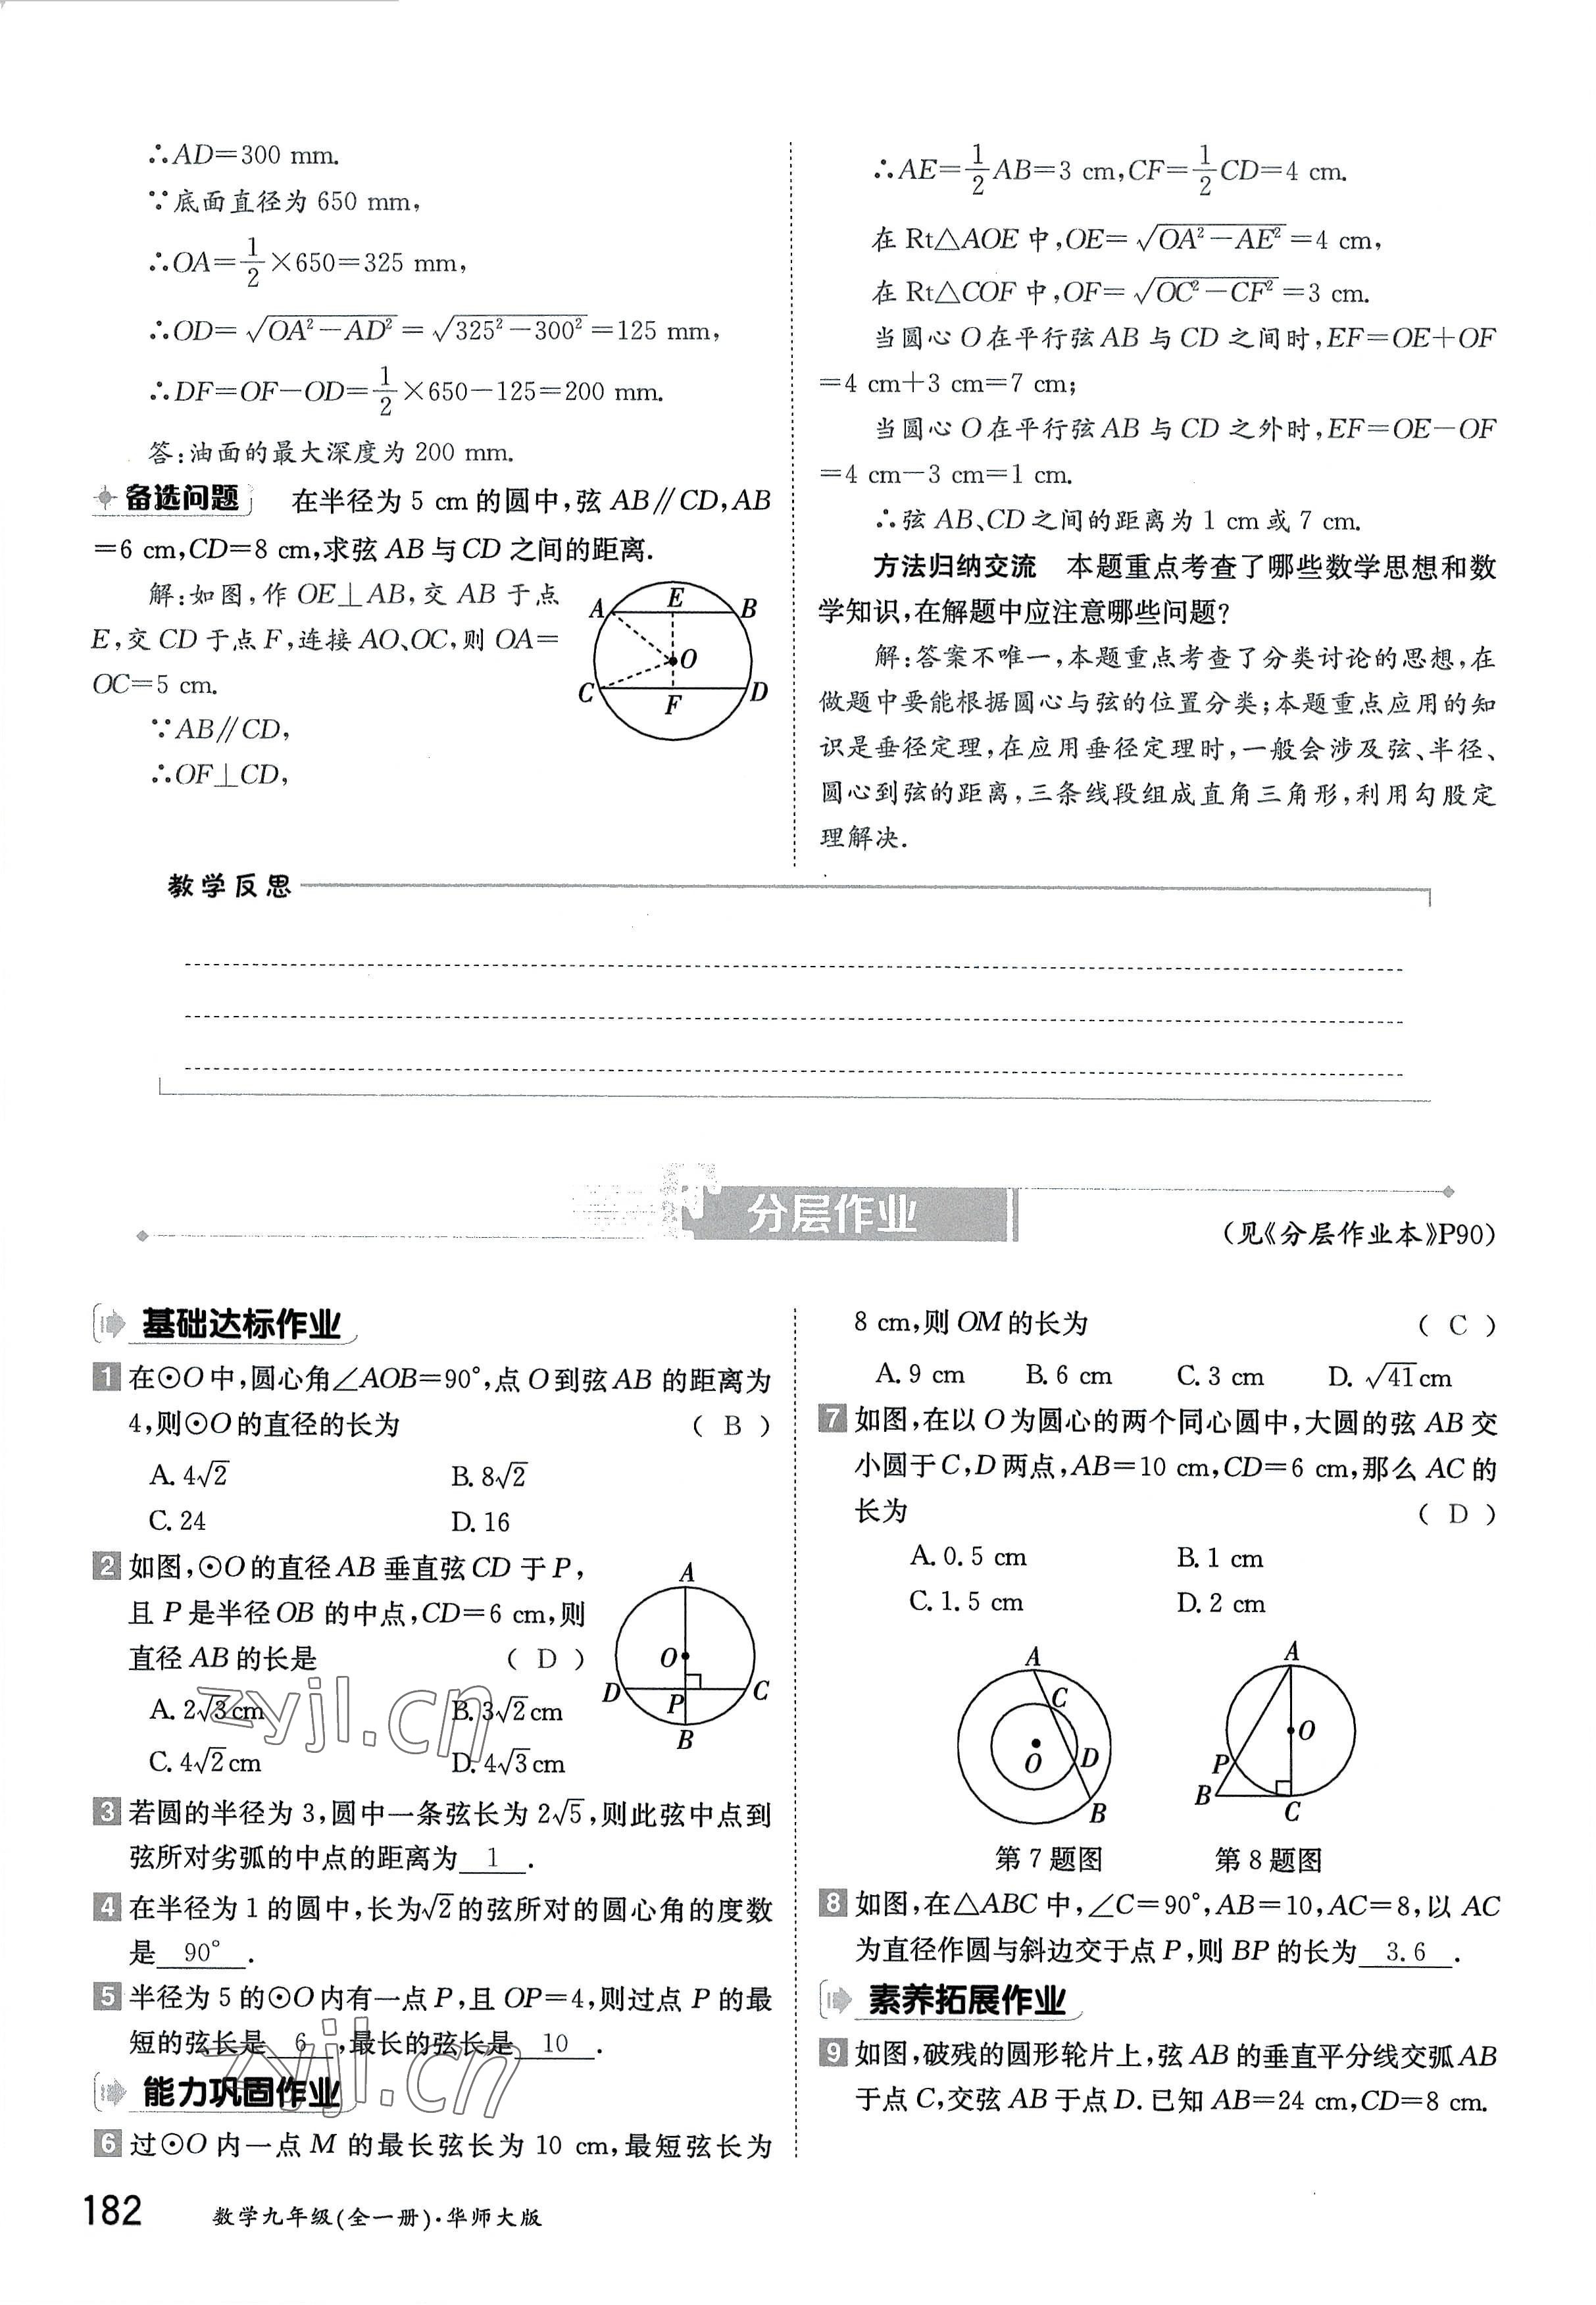 ∴AD=300 mm.
∵底面直径为 650 mm,
∴OA=1/2×650=325 mm,
∴OD=√(OA²-AD²)=√(325²-300²)=125 mm,
∴DF=OF-OD=1/2×650-125=200 mm.
答:油面的最大深度为 200 mm.
备选问题 在半径为 5 cm 的圆中,弦 AB∥CD,AB
=6 cm,CD=8 cm,求弦 AB 与 CD 之间的距离.
解:如图,作 OE⊥AB,交 AB 于点
E,交 CD 于点 F,连接 AO、OC,则 OA=
OC=5 cm.
∵AB∥CD,
∴OF⊥CD,
A E B
O
C F D
∴AE=1/2AB=3 cm,CF=1/2CD=4 cm.
在 Rt△AOE 中,OE=√(OA²-AE²)=4 cm,
在 Rt△COF 中,OF=√(OC²-CF²)=3 cm.
当圆心 O 在平行弦 AB 与 CD 之间时,EF=OE+OF
=4 cm+3 cm=7 cm;
当圆心 O 在平行弦 AB 与 CD 之外时,EF=OE-OF
=4 cm-3 cm=1 cm.
∴弦 AB、CD 之间的距离为 1 cm 或 7 cm.
方法归纳交流 本题重点考查了哪些数学思想和数
学知识,在解题中应注意哪些问题?
解:答案不唯一,本题重点考查了分类讨论的思想,在
做题中要能根据圆心与弦的位置分类;本题重点应用的知
识是垂径定理,在应用垂径定理时,一般会涉及弦、半径、
圆心到弦的距离,三条线段组成直角三角形,利用勾股定
理解决.
教学反思
分层作业
(见《分层作业本》P90)
基础达标作业
1 在⊙O 中,圆心角∠AOB=90°,点 O 到弦 AB 的距离为
4,则⊙O 的直径的长为 ( B )
A. 4√2 B. 8√2
C. 24 D. 16
2 如图,⊙O 的直径 AB 垂直弦 CD 于 P,
且 P 是半径 OB 的中点,CD=6 cm,则
直径 AB 的长是 ( D )
A. 2√3cm B. 3√2cm
C. 4√2cm D. 4√3cm
A
O
D P C
B
3 若圆的半径为 3,圆中一条弦长为 2√5,则此弦中点到
弦所对劣弧的中点的距离为 1 .
4 在半径为 1 的圆中,长为√2的弦所对的圆心角的度数
是 90° .
5 半径为 5 的⊙O 内有一点 P,且 OP=4,则过点 P 的最
短的弦长是 6 ,最长的弦长是 10 .
能力巩固作业
6 过⊙O 内一点 M 的最长弦长为 10 cm,最短弦长为
8 cm,则 OM 的长为 ( C )
A. 9 cm B. 6 cm C. 3 cm D. √41cm
7 如图,在以 O 为圆心的两个同心圆中,大圆的弦 AB 交
小圆于 C,D 两点,AB=10 cm,CD=6 cm,那么 AC 的
长为 ( D )
A. 0.5 cm B. 1 cm
C. 1.5 cm D. 2 cm
A
C
O D
B
第 7 题图
A
O
P
B C
第 8 题图
8 如图,在△ABC 中,∠C=90°,AB=10,AC=8,以 AC
为直径作圆与斜边交于点 P,则 BP 的长为 3.6 .
素养拓展作业
9 如图,破残的圆形轮片上,弦 AB 的垂直平分线交弧 AB
于点 C,交弦 AB 于点 D. 已知 AB=24 cm,CD=8 cm.
zyjl.cn
zyjl.cn
182 数学九年级(全一册)·华师大版